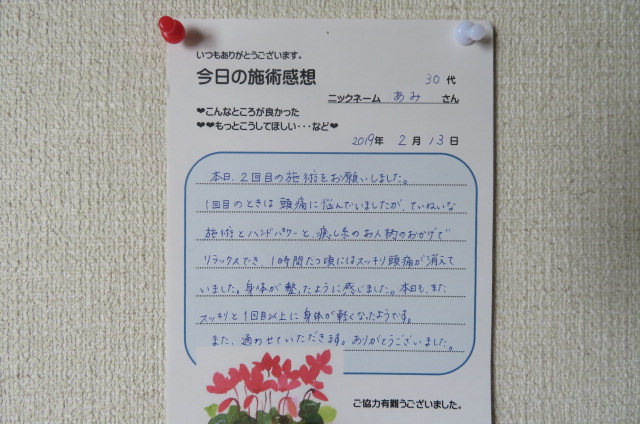 いつもありがとうございます。
今日の施術感想
30代
ニックネーム あみ さん
❤こんなところが良かった
❤❤もっとこうしてほしい・・・など❤
2019年 2月 13日
本日、2回目の施術をお願いしました。
1回目のときは頭痛に悩んでいましたが、ていねいな
施術とハンドパワーと、癒し系のお人柄のおかげで
リラックスでき、1時間たつ頃にはスッキリ頭痛が消えて
いました。身体が整ったように感じました。本日も、また
スッキリと1回目以上に身体が軽くなったようです。
また、通わせていただきます。ありがとうございました。
ご協力有難うございました。